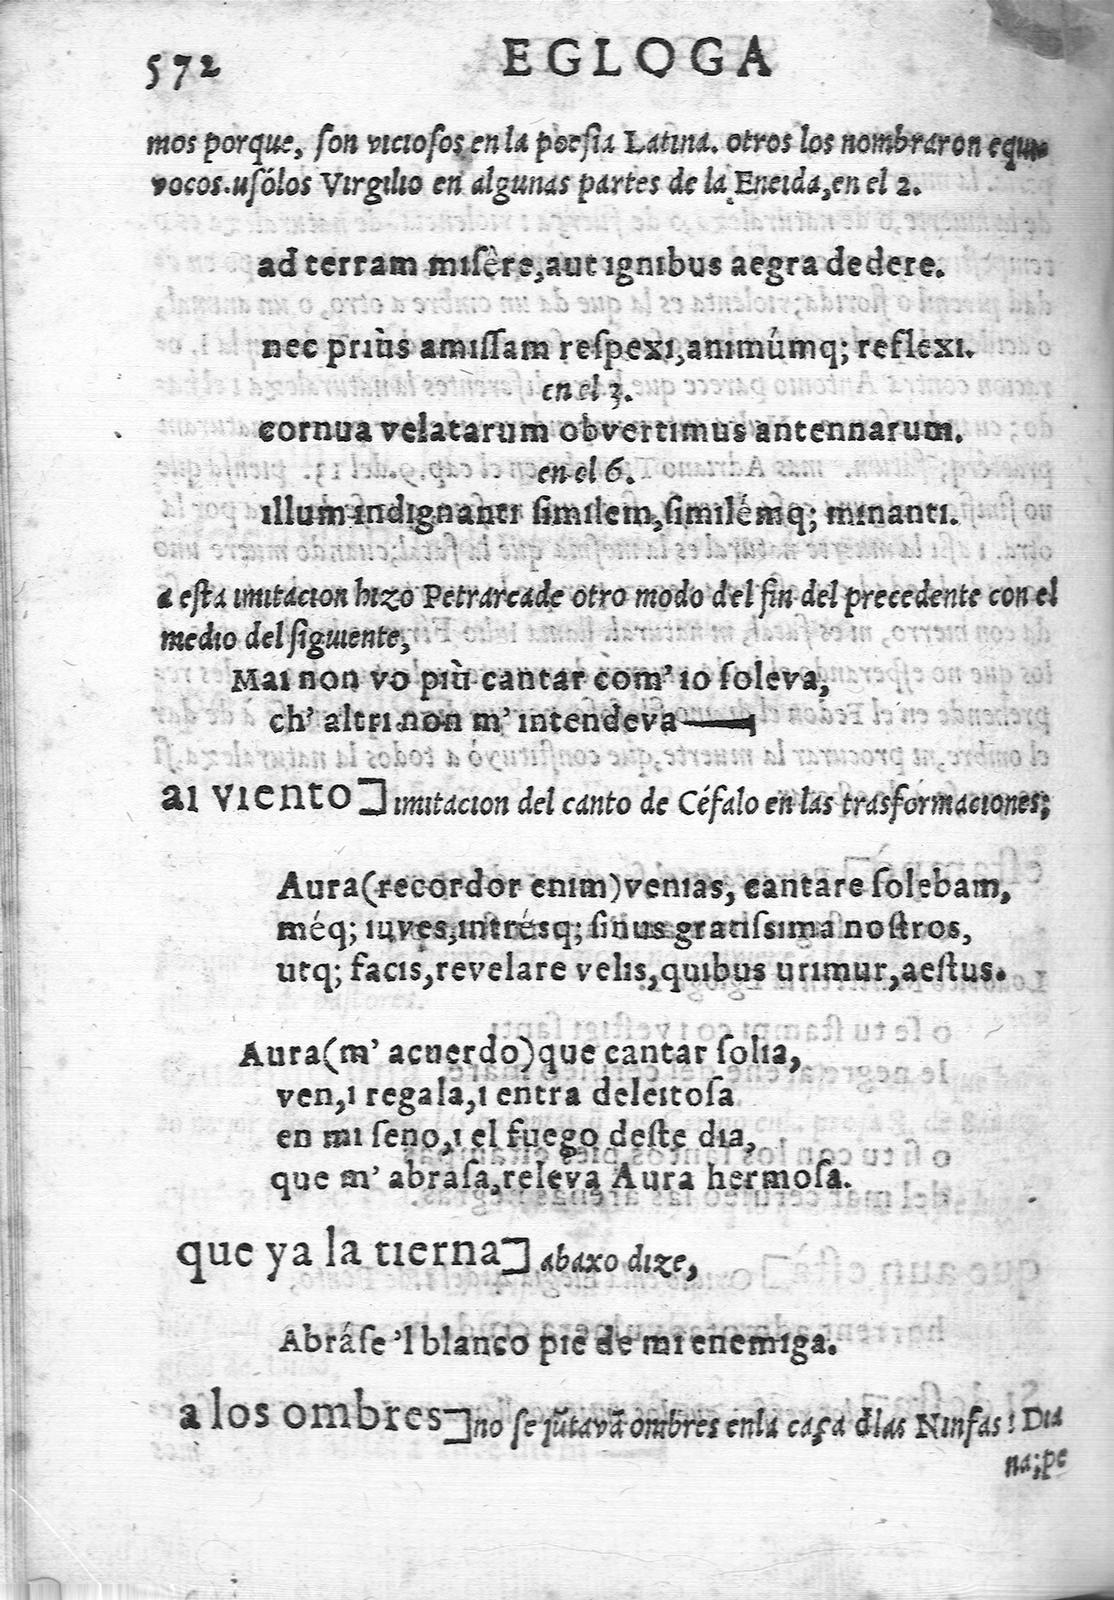 572 EGLOGA
mos porque, ſon vıcıoſos en la poeſıa Latına. otros los nombraron equı
vocos. uſólos Vırgılıo en algunas partes de la Eneıda, en el 2.
ad terram mıſêre, aut ıgnıbus aegra dedere.
nec prıùs amıſſam reſpexı, anımúmq; reflexı.
en el 3.
cornua velatarum obvertımus antennarum.
en el 6.
ıllum ındıgnantı ſımılem, ſımılémq; mınantı.
a eſta ımıtacıon hızo Petrarca de otro modo del fin del precedente con el
medıo del ſıguıente,
Maı non vo pıù cantar com' ıo ſoleva,
ch' altrı non m' ıntendeva——
aı vıento] ımıtacıon del canto de Céfalo en las trasformacıones;
Aura (recordor enım) venıas, cantare ſolebam,
méq; ıuves, ıntrésq; ſınus gratıſsıma noſtros,
utq; facıs, revelare velıs, quıbus urımur, aeſtus.
Aura (m' acuerdo) que cantar ſolıa,
ven, ı regala, ı entra deleıtoſa
en mı ſeno, ı el fuego deſte dıa,
que m' abraſa, releva Aura hermoſa.
que ya la tıerna] abaxo dıze,
Abráſe 'l blanco pıe de mı enemıga.
a los ombres] no ſe jũtavã ombres en la caça d̃las Nınfas ı Dıa
na; pe